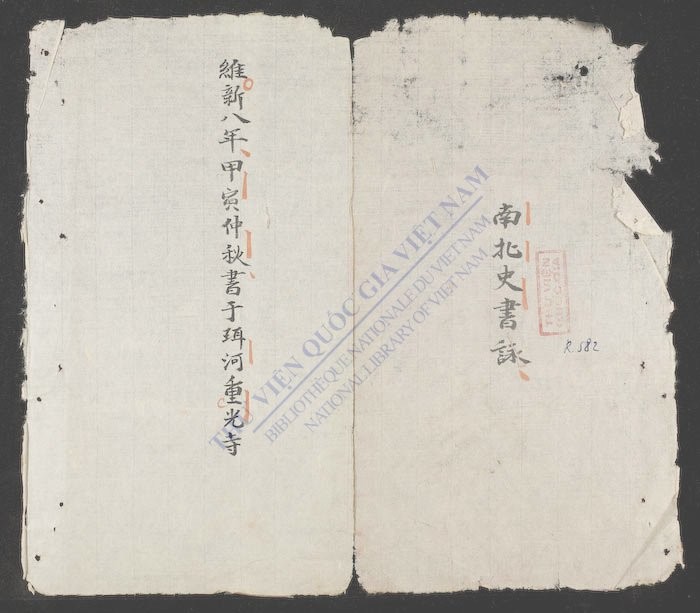 南北史書詠
R.582
THƯ VIỆN
QUỐC GIA
維新八年甲寅仲秋書于珥河重光寺
THƯ VIỆN QUỐC GIA VIỆT NAM
BIBLIOTHÈQUE NATIONALE DU VIET NAM
NATIONAL LIBRARY OF VIETNAM